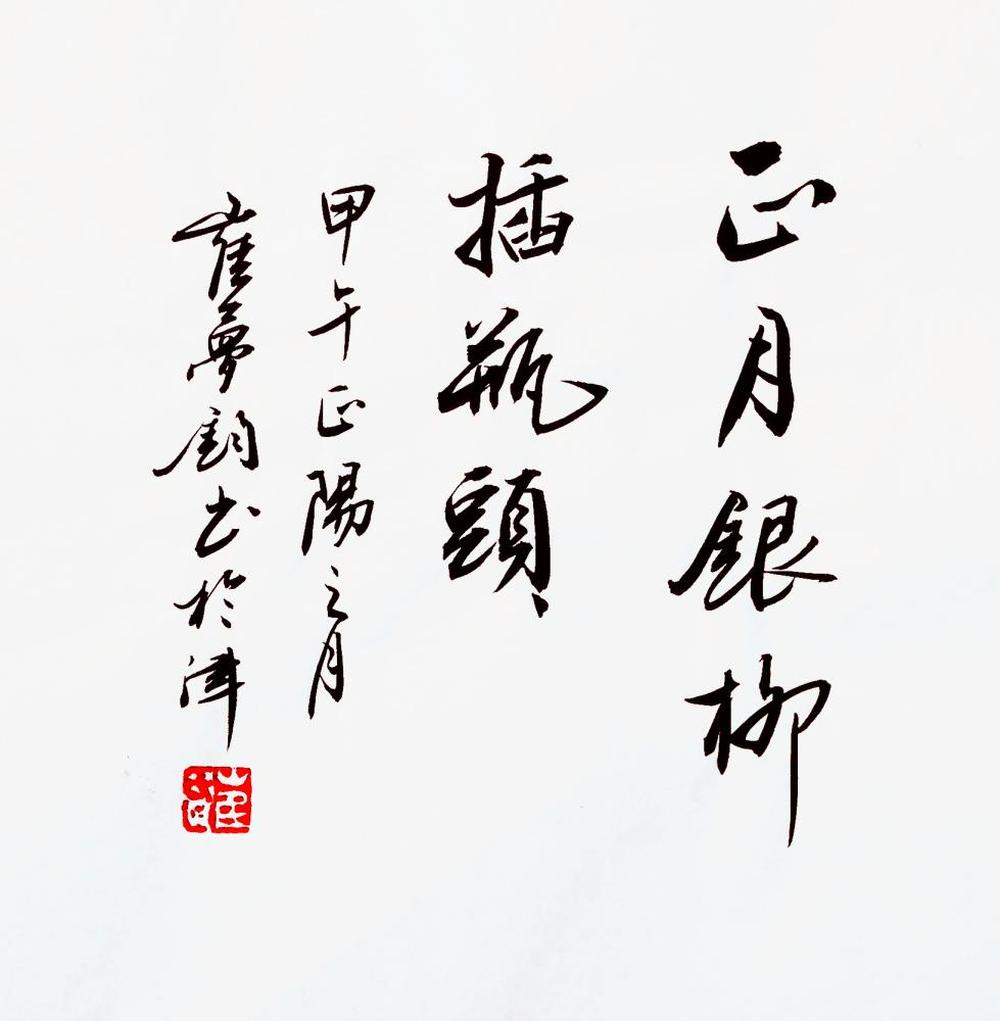 正月銀柳
插瓶頭
甲午正陽之月
崔夢鈞书於津